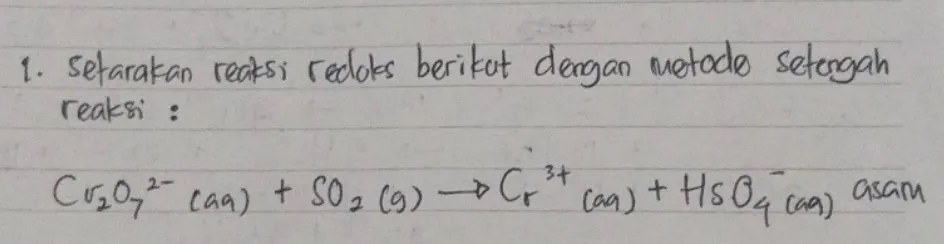 1. Setarakan reaksi redoks berikut dengan metode setengah
reaksi :
Cr₂O₇²⁻ (aq) + SO₂ (g) → Cr³⁺ (aq) + HSO₄⁻ (aq) asam